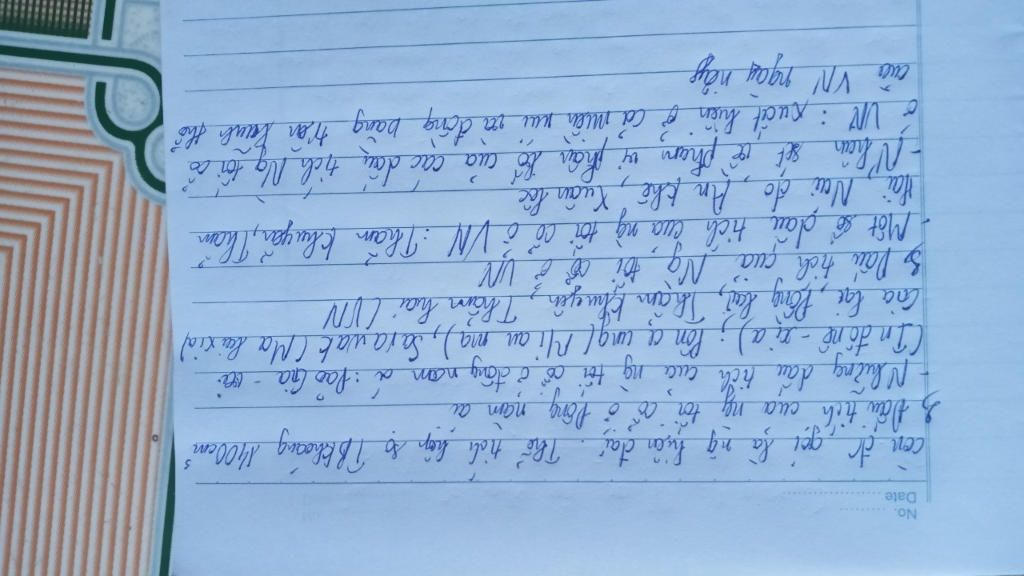 No. ............
Date .....................
còn đc gọi là ng hiện đại. Thể tích hộp sọ TB khoảng 1400cm³
2, Dấu tích của ng tối cổ ở Đông nam á
- Những dấu tích của ng tối cổ ở đông nam á:
(In đô nê - xi a); Pôn a ung (Mi an ma), Sa ra wak (Ma lai xia)
Gia lai, Đồng Nai, Thẩm Khuyên, Thẩm hai (VN
3, Dấu tích của Ng tối cổ ở VN
- Một số dấu tích của ng tối cổ ở VN: Thẩm Khuyên, Thẩm
Hai, Núi đọ, An khê, Xuân lộc
- Nhận sét về phạm vi phân bố của các dấu tích Ng tối cổ
ở VN: xuất hiện ở cả miền núi và đồng bằng trên lãnh thổ
của VN ngày nay